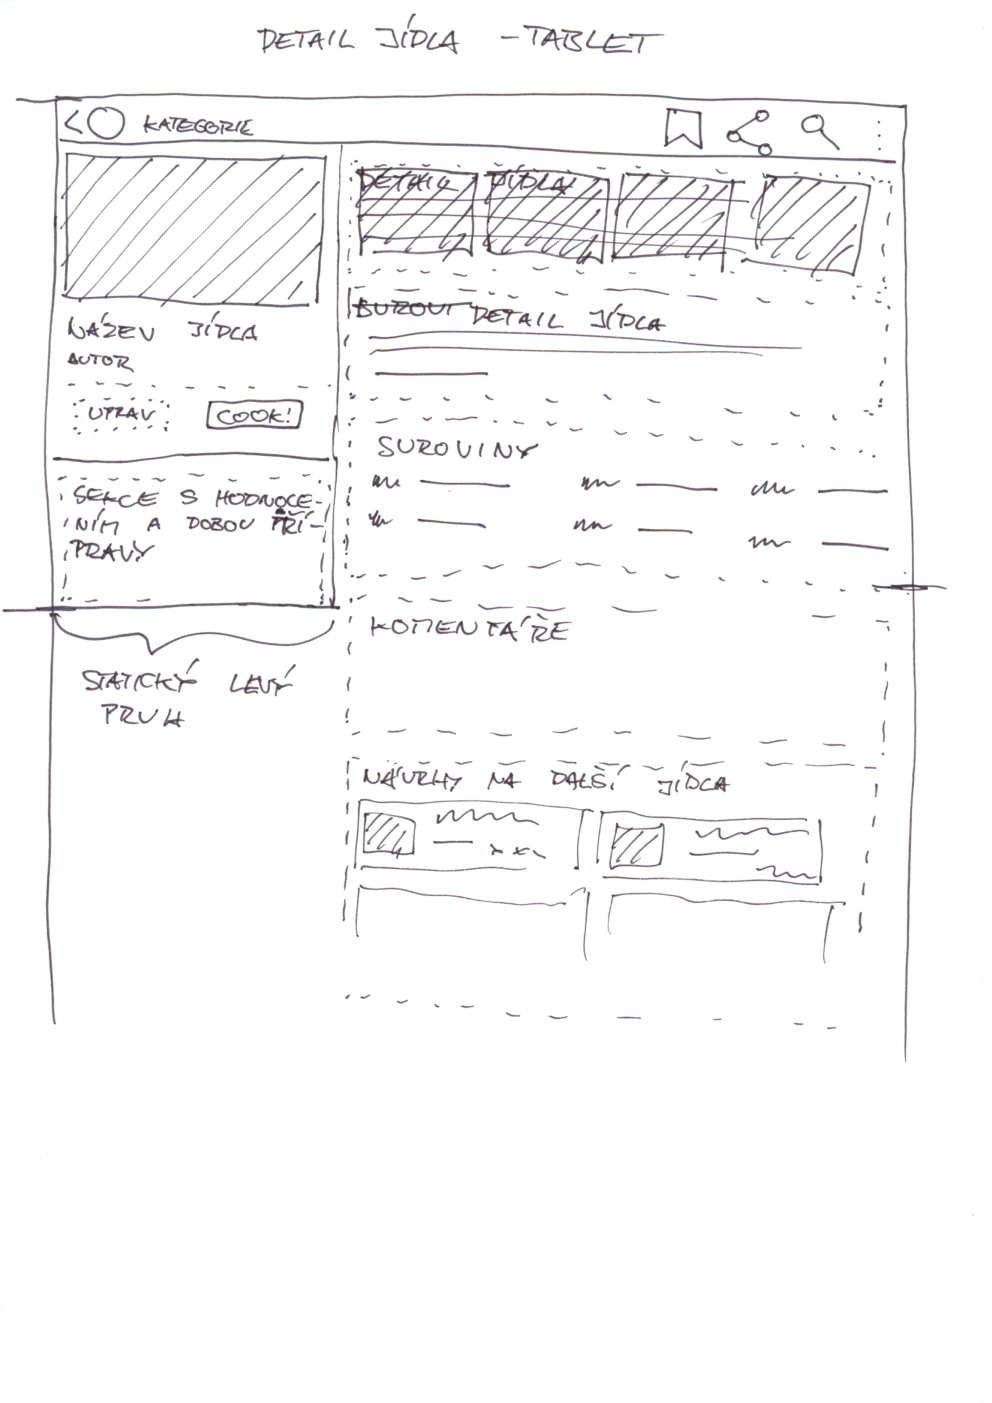 DETAIL JÍDLA - TABLET
KATEGORIE
NÁZEV JÍDLA
AUTOR
UPRAV
COOK!
SEKCE S HODNOCE-
NÍM A DOBOU PŘÍ-
PRAVY
STATICKÝ LEVÝ
PRUH
DETAIL JÍDLA
DETAIL JÍDLA
SUROVINY
KOMENTÁŘE
NÁVRHY NA DALŠÍ JÍDLA